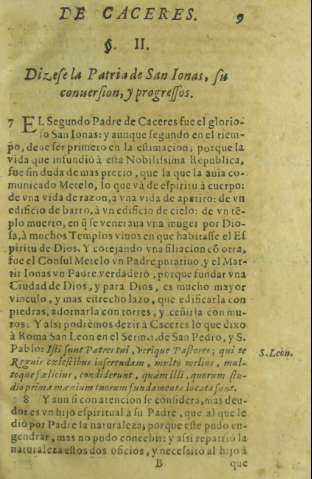 DE CACERES. 9
§. II.
Dizese la Patria de San Ionas, su
conversion, y progressos.
7 EL Segundo Padre de Caceres fue el glorio-
so San Ionas: y aunque segundo en el tiem-
po, deve ser primero en la estimacion; porque la
vida que infundiò à esta Nobilissima Republica,
fue sin duda de mas precio, que la que la avia co-
municado Metelo, lo que và de espiritu à cuerpo:
de vna vida de razon, a vna vida de apetito: de vn
edificio de barro, à vn edificio de cielo: de vn tẽ-
plo muerto, en q̃ se venerava vna muger por Dio-
sa, à muchos Templos vivos en que habitasse el Es
piritu de Dios. Y cotejando vna filiacion cõ otra,
fue el Consul Metelo vn Padre putativo, y el Mar-
tir Ionas vn Padre verdadero, porque fundar vna
Ciudad de Dios, y para Dios, es mucho mayor
vinculo, y mas estrecho lazo, que edificarla con
piedras, adornarla con torres, y ceñirla con mu-
ros. Y assi podrèmos dezir à Caceres lo que dixo
à Roma San Leon en el Serm.1. de San Pedro, y S.
Pablo: Isti sunt Patres tui, verique Pastores; qui te
Regnis cælestibus inserendam, multò meliùs, mul-
toque fæliciùs, condiderunt, quàm illi, quorum stu-
dio prima mænium tuorum fundamenta locata sunt.
S. Leon.
8 Y aun si con atencion se considera, mas deu-
dor es vn hijo espiritual à su Padre, que al que le
diò por Padre la naturaleza; porque este pudo en-
gendrar, mas no pudo concebir: y assi repartiò la
naturaleza estos dos oficios, y necesitò al hijo à
B que